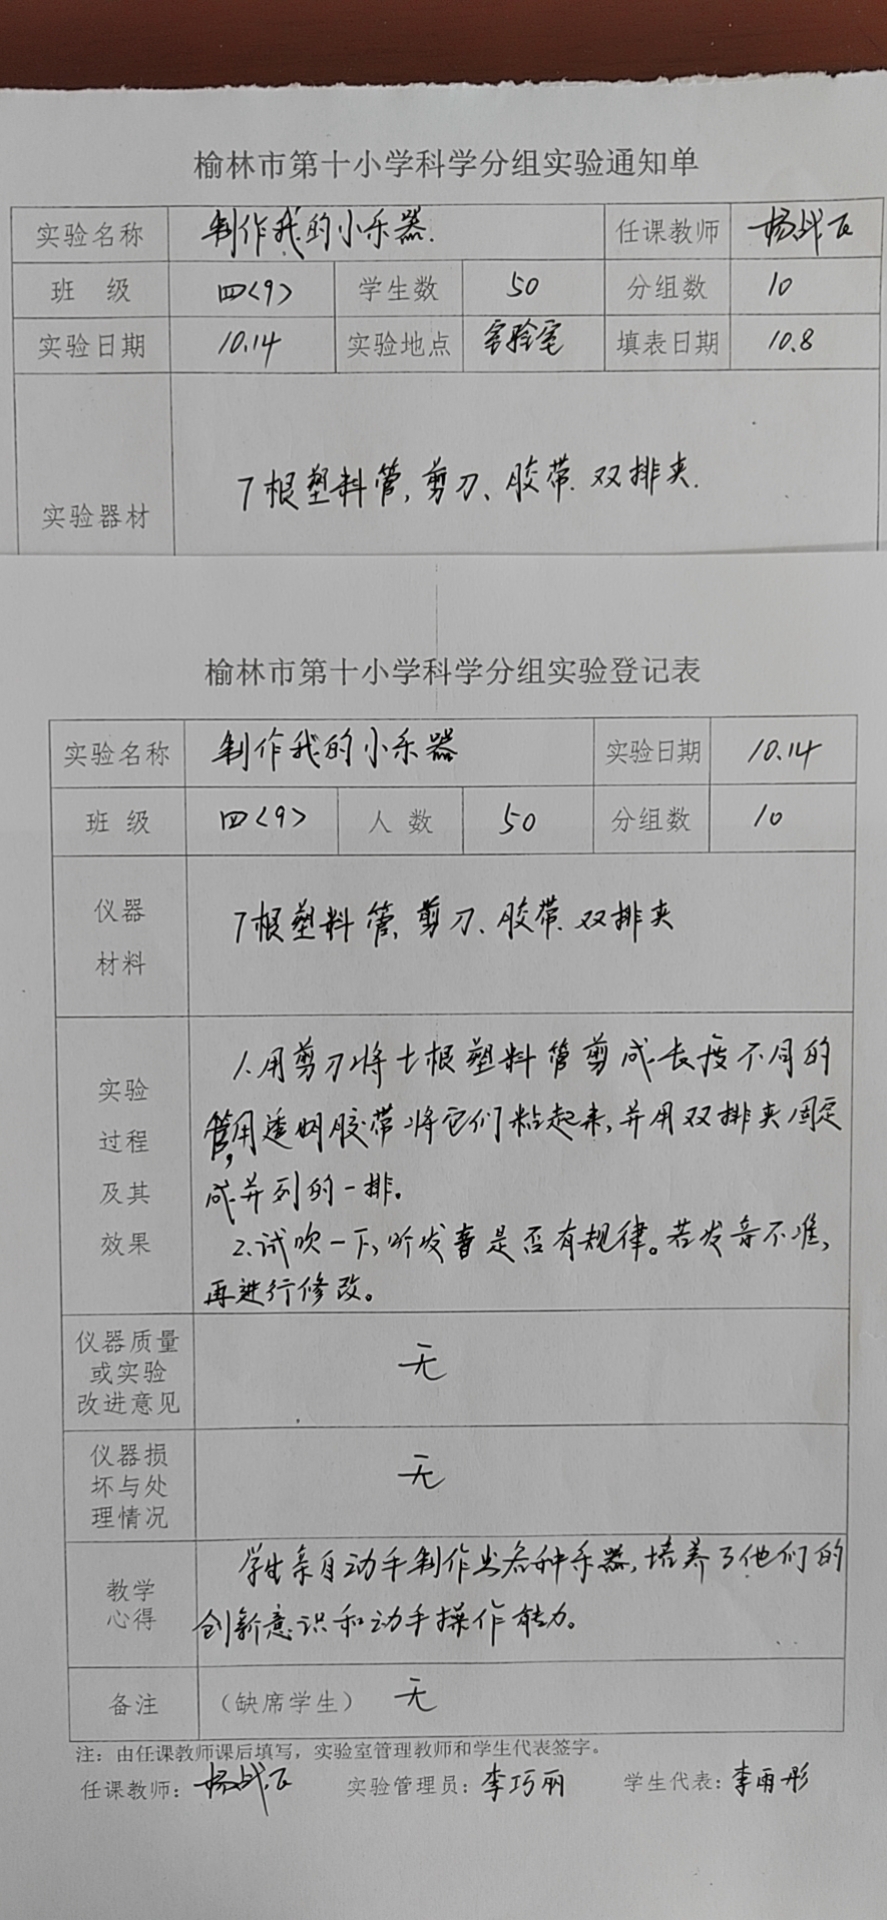 榆林市第十小学科学分组实验通知单
实验名称 制作我的小乐器. 任课教师
班 级 四<9> 学生数 50 分组数 10
实验日期 10.14 实验地点 实验室 填表日期 10.8
实验器材 7根塑料管,剪刀、胶带.双排夹.
榆林市第十小学科学分组实验登记表
实验名称 制作我的小乐器 实验日期 10.14
班 级 四<9> 人 数 50 分组数 10
仪器
材料
7根塑料管,剪刀、胶带.双排夹
实验
过程
及其
效果
1.用剪刀将七根塑料管剪成长度不同的
管,用透明胶带将它们粘起来,并用双排夹固定
成并列的一排。
2.试吹一下,听发音是否有规律。若发音不准,
再进行修改。
仪器质量
或实验
改进意见
无
仪器损
坏与处
理情况
无
教学
心得
学生亲自动手制作出各种乐器,培养了他们的
创新意识和动手操作能力。
备注 (缺席学生) 无
注:由任课教师课后填写,实验室管理教师和学生代表签字。
任课教师: 实验管理员:李巧丽 学生代表:李雨彤